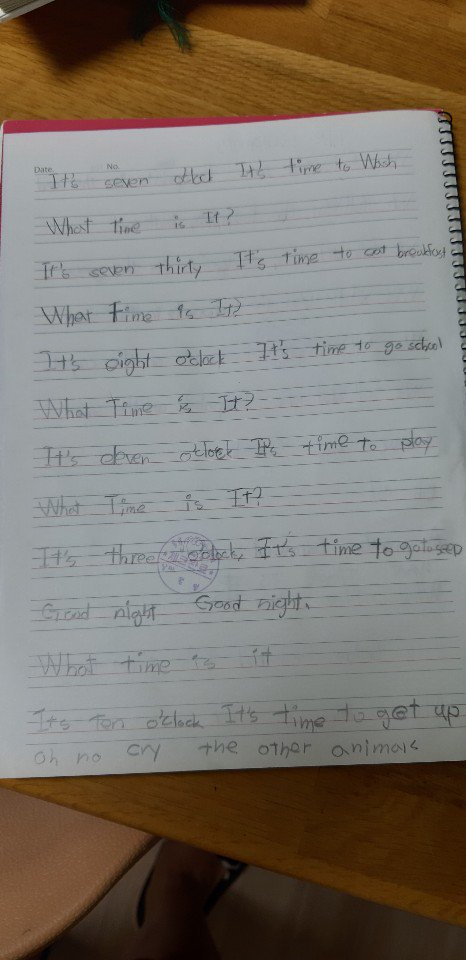 Date. No.
It's seven o'clock It's time to Wash
What time is It?
It's seven thirty It's time to eat breakfast
What Time is It?
It's eight o'clock It's time to go school
What Time is It?
It's eleven o'clock It's time to play
What Time is It?
It's three o'clock, It's time to go to
Good night Good night.
What time is it
It's ten o'clock It's time to get up
Oh no cry the other animals